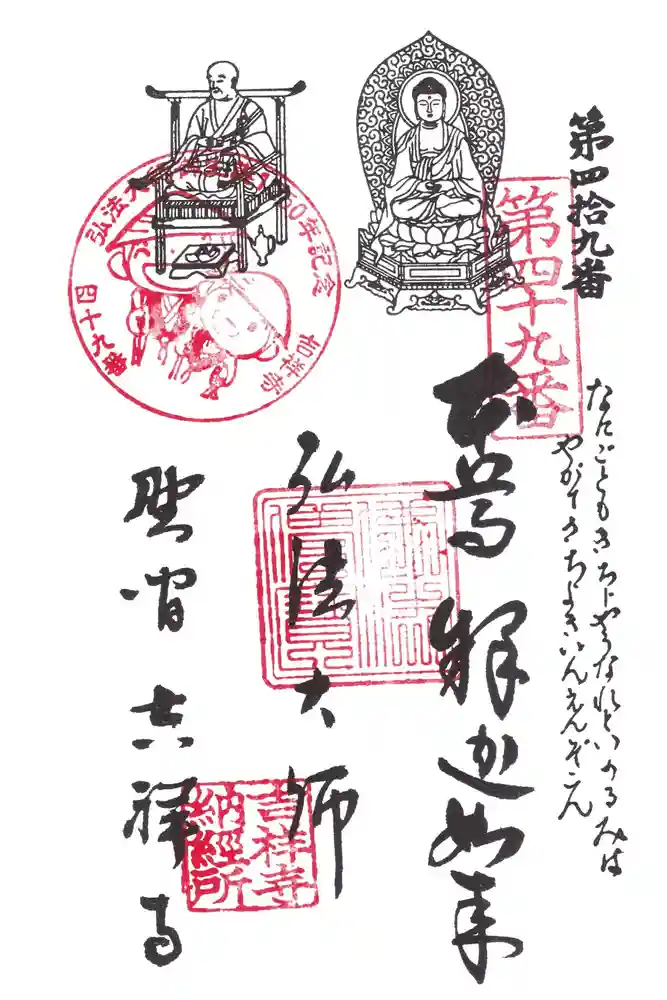 第四拾九番
なにごともきちじやうなれといのるみは
やがてきちよきいんえんぞこん
第四十九番
本尊 釋迦如来
弘法大師
野間 吉祥寺
弘法大
0年記念
吉祥寺
四十九番
吉祥寺
納経所